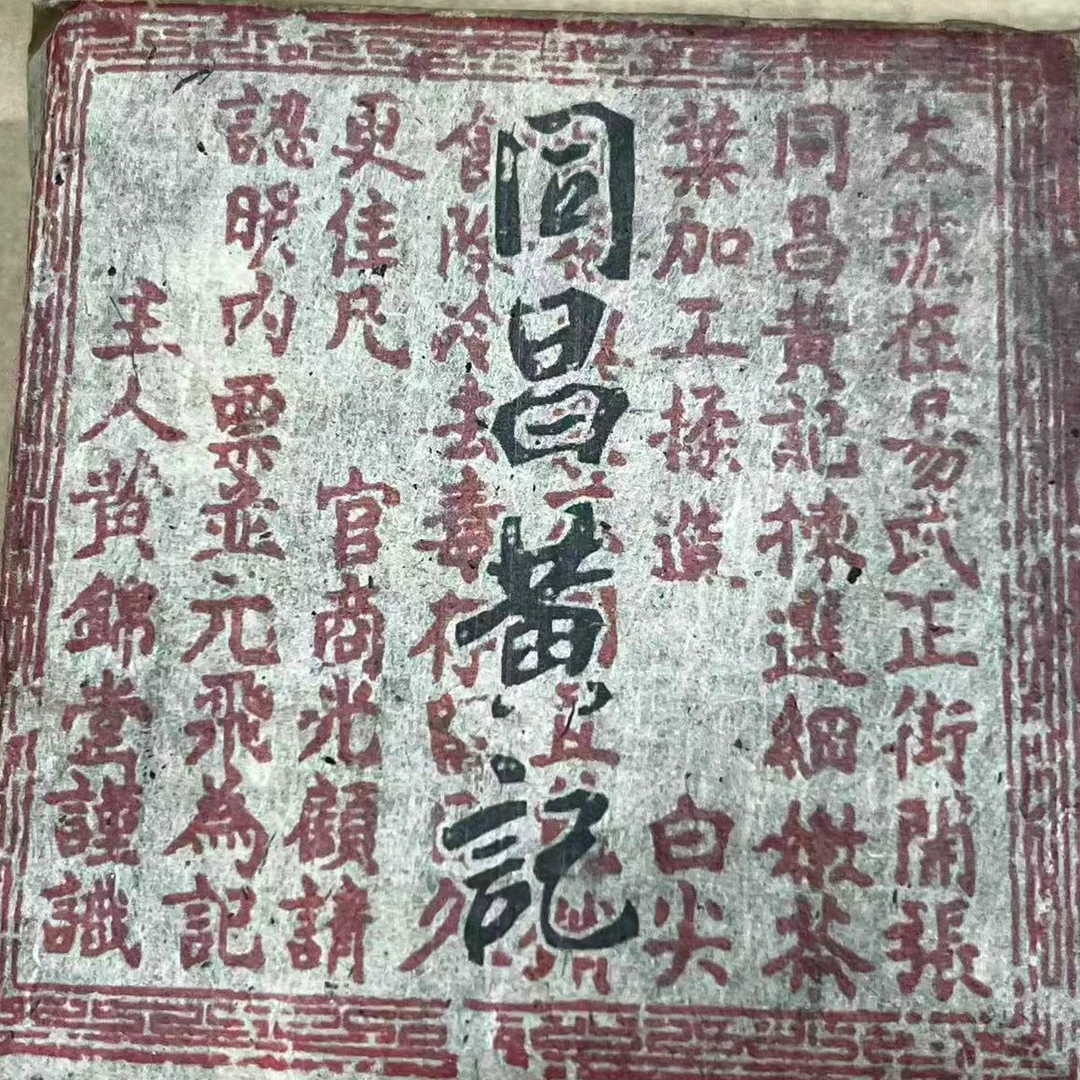 本號在易武正街開張
同昌黃記揀選細嫩茶
葉加工揉造 白尖
同昌黃記
食除冷去毒存 久
更佳凡 官商光顧請
認明內 票並元飛為記
主人黃錦堂謹識